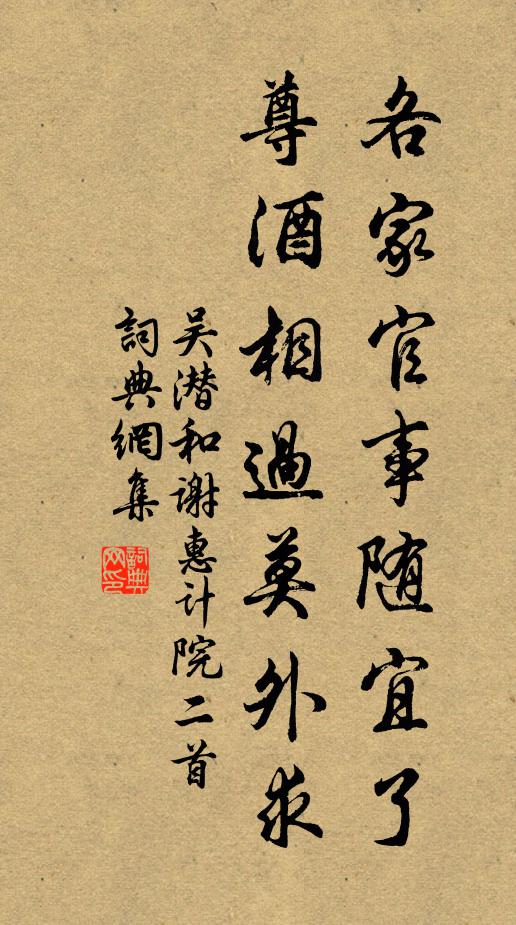 各家官事随宜了
尊酒相過莫外求
吴潜和谢惠计院二首
詞典網集
詞典网印